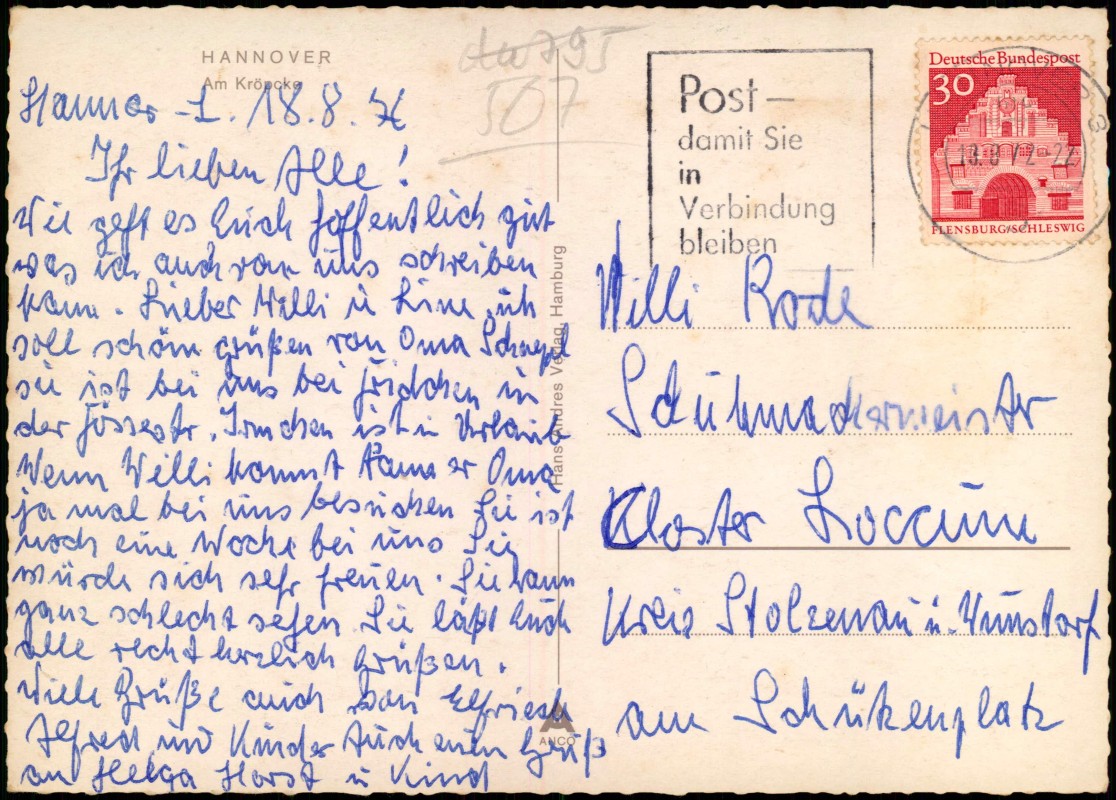 HANNOVER
Am Kröpcke
507
Post –
damit Sie
in
Verbindung
bleiben
Deutsche Bundespost
30
18.8.72-22
FLENSBURG/SCHLESWIG
Hans Andres Verlag, Hamburg
ANCO
18.8.
Ihr lieben Alle!
Wie geht es Euch hoffentlich gut
was ich auch von uns schreiben
kann. Lieber Willi u Line ich
soll schön grüßen von Oma
sie ist bei uns bei Friedchen in
der Össestr. Irmchen ist in Urlaub
Wenn Willi kommt kann er Oma
ja mal bei uns besuchen Sie ist
noch eine Woche bei uns Sie
würde sich sehr freuen. Sie kann
ganz schlecht sehen. Sie läßt Euch
alle recht herzlich Grüßen.
Viele Grüße auch von Elfriede
Alfred und Kinder Auch einen Gruß
an Helga Horst u Kind
Willi Rode
Schuhmachermeister
Kloster Loccum
Kreis Stolzenau ü. Wunstorf
am Schützenplatz